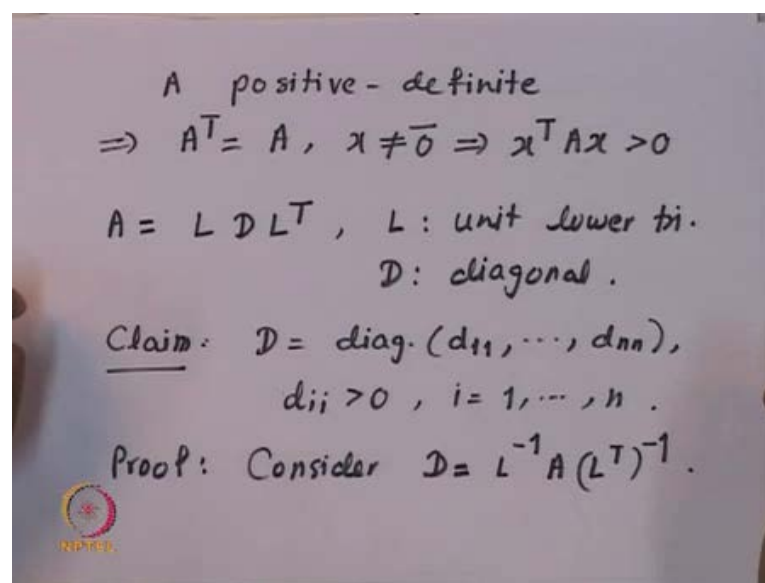 A positive - definite
⇒ Aᵀ = A, x ≠ 0̄ ⇒ xᵀAx > 0
A = L D Lᵀ, L : unit lower tri.
D : diagonal.
Claim: D = diag. (d₁₁, ···, dₙₙ),
dᵢᵢ > 0, i = 1, ···, n.
Proof: Consider D = L⁻¹A(Lᵀ)⁻¹.
NPTEL